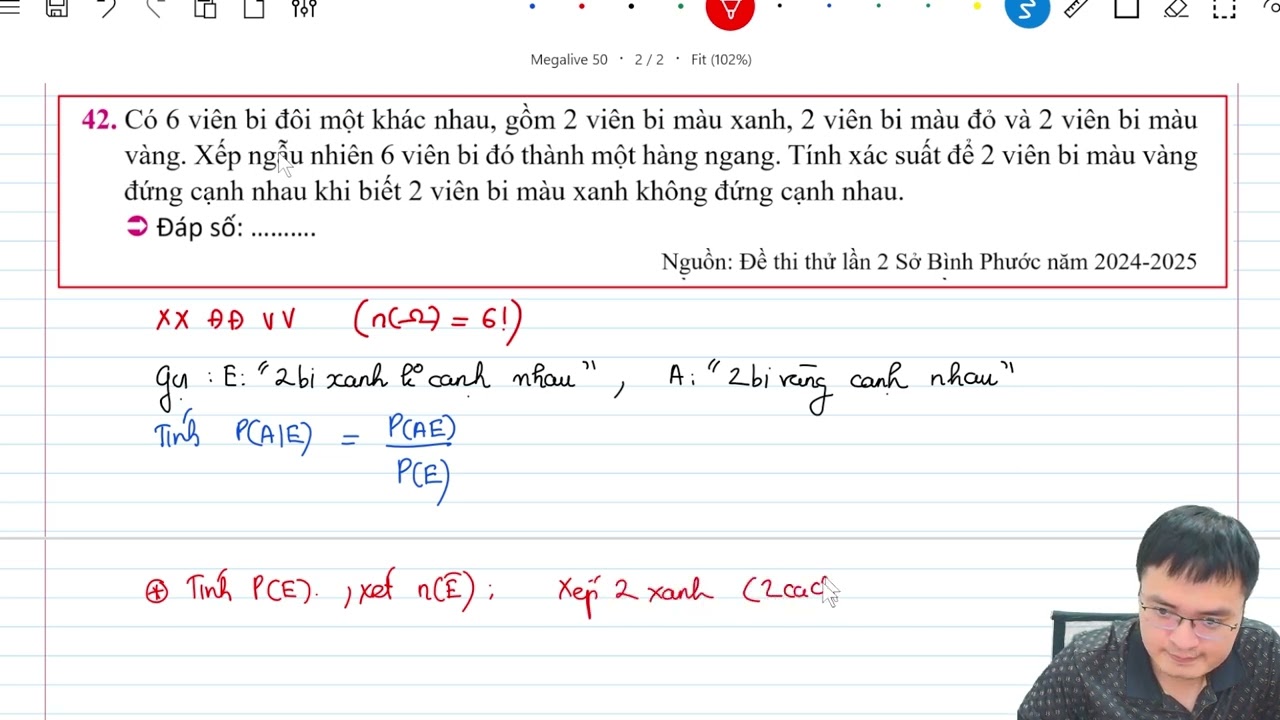 Megalive 50 · 2 / 2 · Fit (102%)
42. Có 6 viên bi đôi một khác nhau, gồm 2 viên bi màu xanh, 2 viên bi màu đỏ và 2 viên bi màu
vàng. Xếp ngẫu nhiên 6 viên bi đó thành một hàng ngang. Tính xác suất để 2 viên bi màu vàng
đứng cạnh nhau khi biết 2 viên bi màu xanh không đứng cạnh nhau.
➲ Đáp số: ..........
Nguồn: Đề thi thử lần 2 Sở Bình Phước năm 2024-2025
XX ĐĐ VV (n(Ω) = 6!)
Gọi : E: "2 bi xanh k° cạnh nhau", A: "2 bi vàng cạnh nhau"
Tính P(A|E) = P(AE)
P(E)
⊕ Tính P(E). , xét n(E̅) : Xếp 2 xanh (2 các